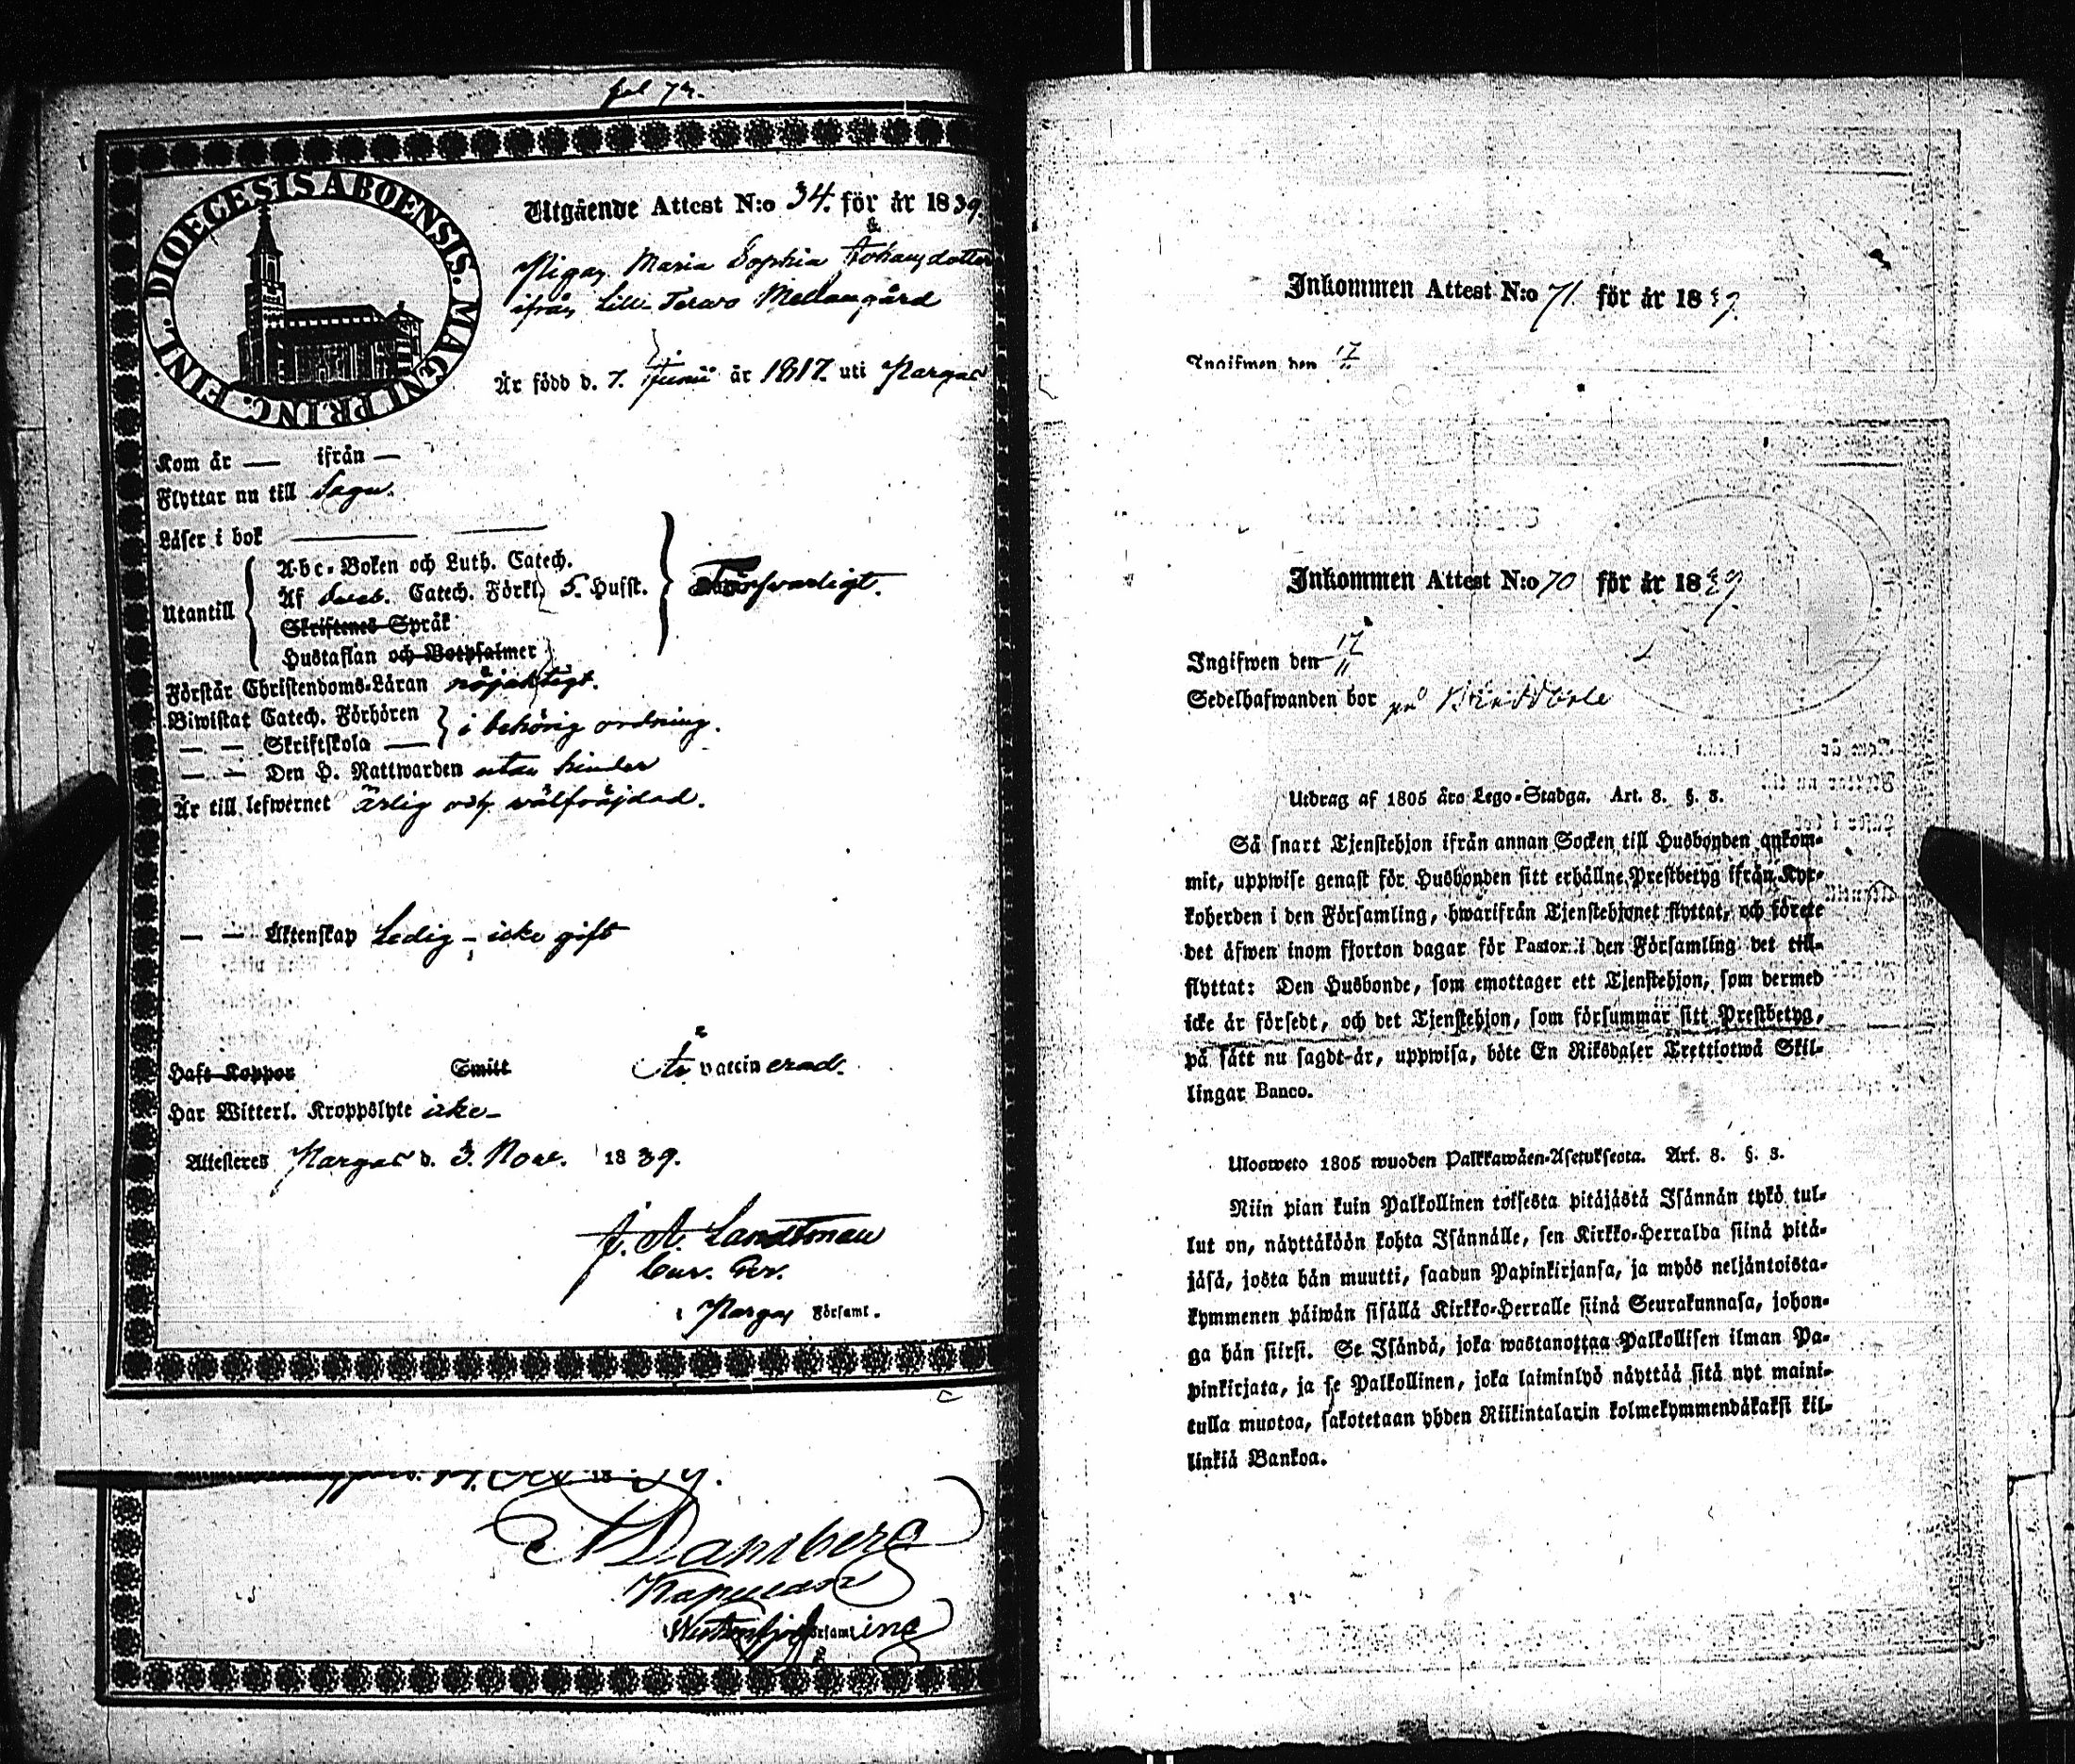 fol 72.
DIOECESIS ABOENSIS. MAGNI PRINC. FINL.
Utgående Attest N:o 34. för år 1839.
Pigan Maria Sophia Johansdotter
ifrån Lille Terwo Mellangård
Är född d. 7. Junii år 1817. uti Pargas
Kom år — ifrån —
Flyttar nu till Sagu.
Läser i bok
Utantill
Abc-Boken och Luth. Catech.
Af Sveb. Catech. Förkl. 5. Hufst.
Skriftenes Språk
Hustaflan och Botpsalmer
Försvarligt.
Förstår Christendoms-Läran nöjaktigt.
Biwistat Catech. Förhören
— — Skriftskola —
i behörig ordning.
— — Den H. Nattwarden utan hinder
Är till lefwernet ärlig och välfräjdad.
— — Äktenskap Ledig - icke gift
Haft Koppor Smitt Är vaccinerad.
Har Witterl. Kroppslyte icke -
Attesteres Pargas d. 3. Nov. 1839.
J. A. Landtman
Cur. Ger.
i Pargas Församl.
18 39.
Kapellan
Församling
Inkommen Attest N:o 71. för år 1839.
Ingifwen den 17
Inkommen Attest N:o 70 för år 1839
Ingifwen den 17/11
Sedelhafwanden bor på
Utdrag af 1805 års Lego-Stadga. Art. 8. §. 3.
Så snart Tjenstehjon ifrån annan Socken till Husbonden ankom-
mit, uppwise genast för Husbonden sitt erhållne Prestbetyg ifrån Kyr-
koherden i den Församling, hwarifrån Tjenstehjonet flyttat, och förete
det äfwen inom fjorton dagar för Pastor i den Församling det till-
flyttat: Den Husbonde, som emottager ett Tjenstehjon, som dermed
icke är försedt, och det Tjenstehjon, som försummar sitt Prestbetyg,
på sätt nu sagdt är, uppwisa, böte En Riksdaler Trettiotwå Skil-
lingar Banco.
Ulosweto 1805 wuoden Palkkawäen-Asetuksesta. Art. 8. §. 3.
Niin pian kuin Palkollinen toisesta pitäjästä Isännän tykö tul-
lut on, näyttäköön kohta Isännälle, sen Kirkko-Herralda siinä pitä-
jäsä, josta hän muutti, saadun Papinkirjansa, ja myös neljäntoista-
kymmenen päiwän sisällä Kirkko-Herralle siinä Seurakunnasa, johon-
ga hän siirsi. Se Isändä, joka wastanottaa Palkollisen ilman Pa-
pinkirjata, ja se Palkollinen, joka laiminlyö näyttää sitä nyt maini-
tulla muotoa, sakotetaan yhden Riikintalarin kolmekymmendäkaksi kil-
linkiä Bankoa.